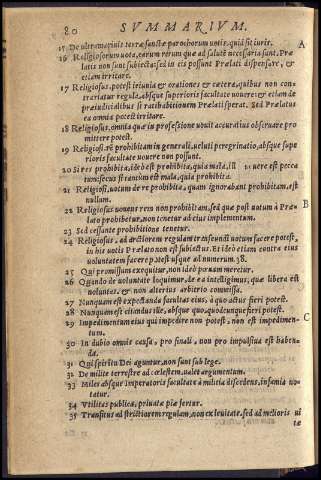 80 SVMMARIVM.
15 De vltramarinis terræ sanctæ parochorum votis, quid sit iuris.
16 Religiosorum vota, earum rerum quæ ad salutē necessaria sunt, Præ
latis non sunt subiecta: sed in eis possunt Prælati dispensare, &
etiam irritare.
17 Religiosus, potest ieiunia & orationes & cætera, quibus non con
trariatur regula, absque superioris facultate vouere: & etiam in
præiudicialibus si ratihabitionem Prælati sperat. Sed Prælatus
ea omnia potest irritare.
18 Religiosus, omnia quæ in professione vouit accuratius obseruare pro
mittere potest.
19 Religiosi, re prohibitam in generali, veluti peregrinatio, absque supe
rioris facultate vouere non possunt.
20 Si res prohibita, ideo est prohibita, quia mala, ill vouere est pecca
tum: secus si tantum est mala, quia prohibita.
21 Religiosi, votum de re prohibita, quam ignorabant prohibitam, est
nullum.
22 Religiosus vouens rem non prohibitam, sed quæ post votum à Præ
lato prohibetur, non tenetur ad eius implementum.
23 Sed cessante prohibitione tenetur.
24 Religiosus, ad arctiorem regulam transeundi votum facere potest,
in his votis Prælato non est subiectus. Et ideo etiam contra eius
voluntatem facere potest vsque ad numerum. 38.
25 Qui promissum exequitur, non ideo pœnam meretur.
26 Quando de voluntate loquimur, de ea intelligimus, quæ libera est
voluntas, & non alterius arbitrio commissa.
27 Nunquam est expectanda facultas eius, à quo actus fieri potest.
28 Nunquam est citandus ille, absque quo, quod cunque fieri potest.
29 Impedimentum eius qui impedire non potest, non est impedimen-
tum.
30 In dubio omnis causa, pro finali, non pro impulsiua est haben-
da.
31 Qui spiritu Dei aguntur, non sunt sub lege.
32 De milite terrestre ad cœlestem, valet argumentum.
33 Miles absque imperatoris facultate à militia discedens, infamia no-
tatur.
34 Vtilitas publica, priuatæ præfertur.
35 Transitus ad strictiorem regulam, non ex leuitate, sed ad melioris vi
tæ
A
B
C